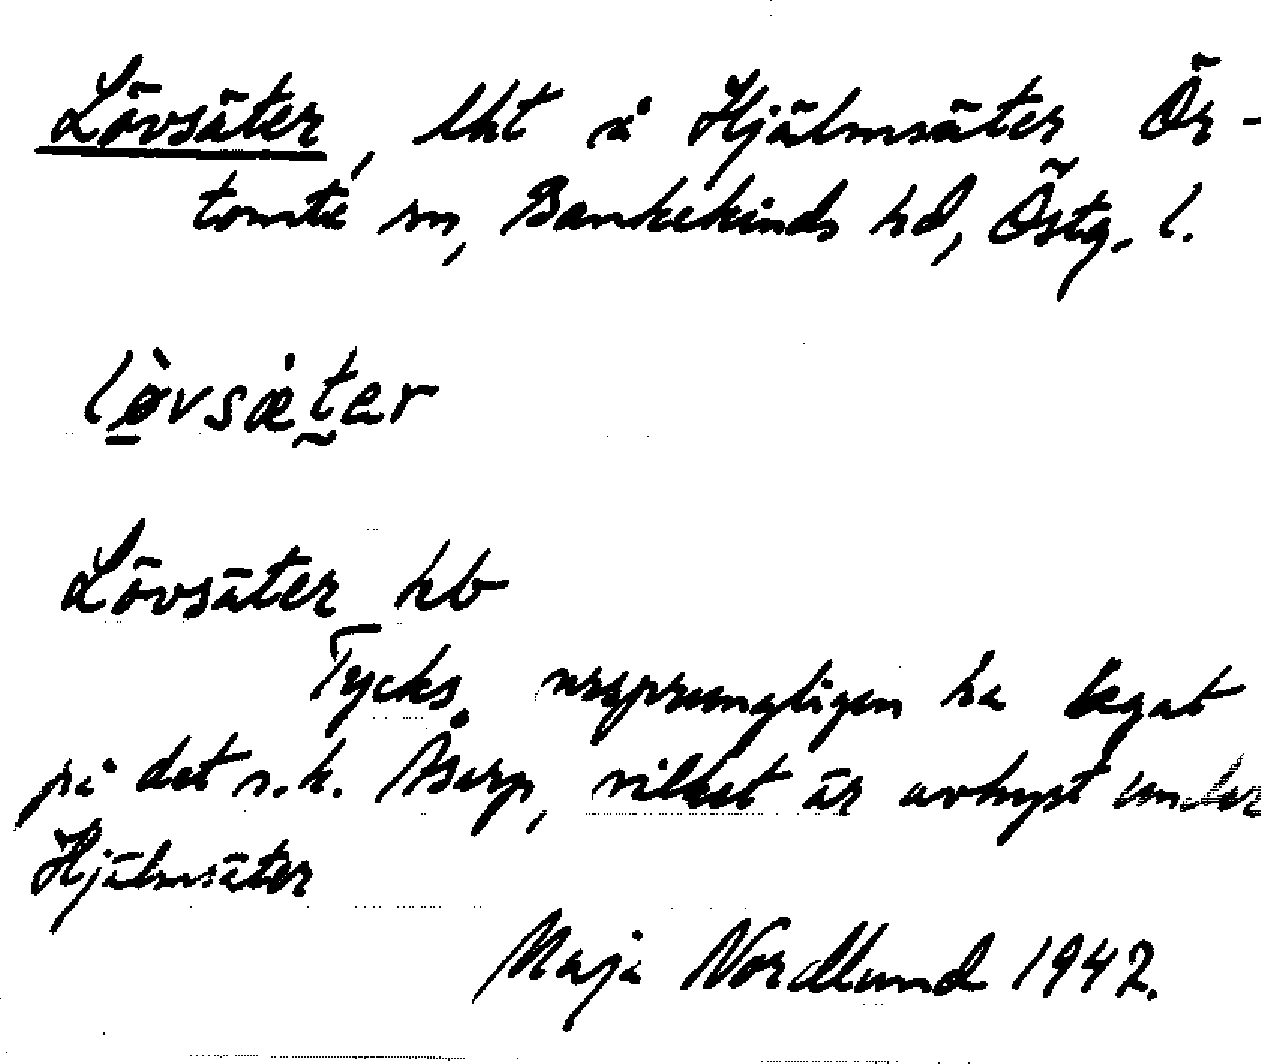 Lövsäter, lht å Hjälmsäter Ör-
tomta sn, Bankekinds hd, Östg. l.
lø̀vsæ̇ter
Lövsäter hb
Tycks ursprungligen ha legat
på det s.k. Åserp, vilket är avhyst under
Hjälmsäter
Maja Nordlund 1942.